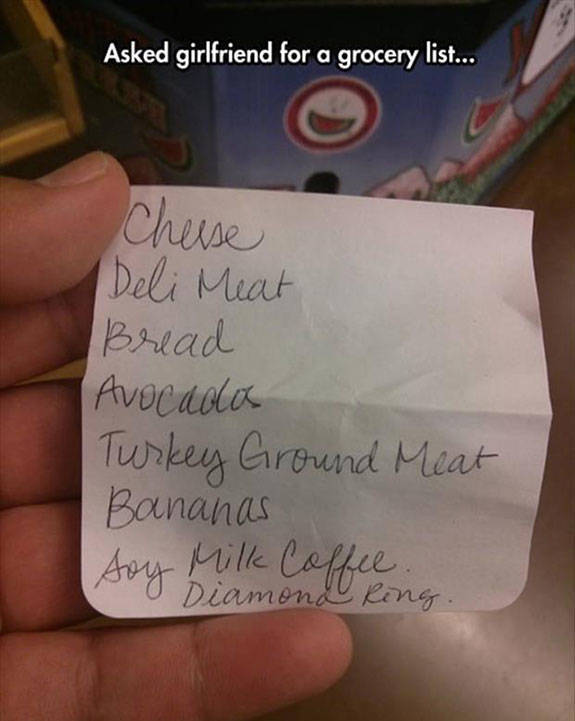 Asked girlfriend for a grocery list...
Cheese
Deli Meat
Bread
Avocados
Turkey Ground Meat
Bananas
Soy Milk Coffee.
Diamond Ring.